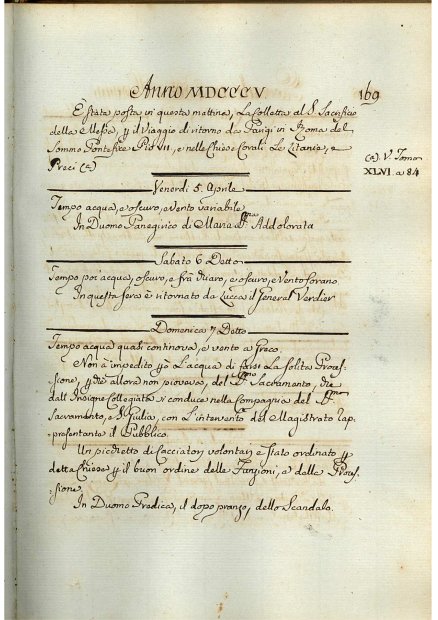 Anno MDCCCV
169
È stata posta in questa mattina, La Colletta al S. Sacrificio
della Messa, p il Viaggio di ritorno da Parigi in Roma del
Sommo Pontefice Pio VII, e nelle Chiese Corali Le Litanie, e
Preci (a)
(a) V. Tomo
XLVI. a 84
Venerdì 5. Aprile
Tempo acqua, e oscuro, e vento variabile
In Duomo Panegirico di Maria SS.ma Addolorata
Sabato 6 Detto
Tempo poi acqua, oscuro, e frà chiaro, e oscuro, e Vento forano
In questa sera è ritornato da Lucca il General Verdier
Domenica 7 Detto
Tempo acqua quasi continova, e vento a Greco.
Non à impedito p L'acqua di farsi La solita Proces-
sione, p che allora non pioveva, del SS.mo Sacramento, che
dall'Insigne Collegiata si conduce nella Compagnia del SS.mo
Sacramento, e S. Giulia, con L'intervento del Magistrato rap-
presentante il Pubblico.
Un picchetto di Cacciatori volontari è stato ordinato p
detta Chiesa p il buon ordine delle Funzioni, e delle Proces-
sione.
In Duomo Predica, il dopo pranzo, dello Scandalo.